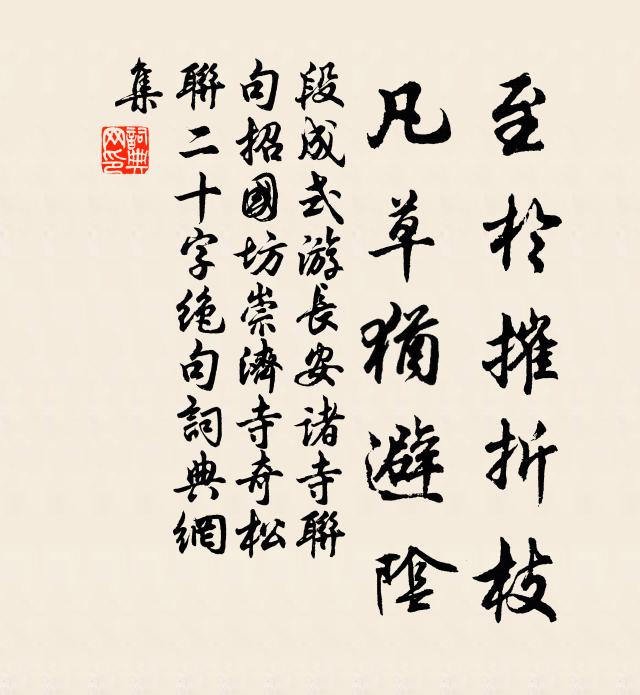 至於摧折枝
凡草猶避陰
段成式游長安諸寺聯
句招國坊崇濟寺奇松
聯二十字絶句詞典網
集
詞典
网印